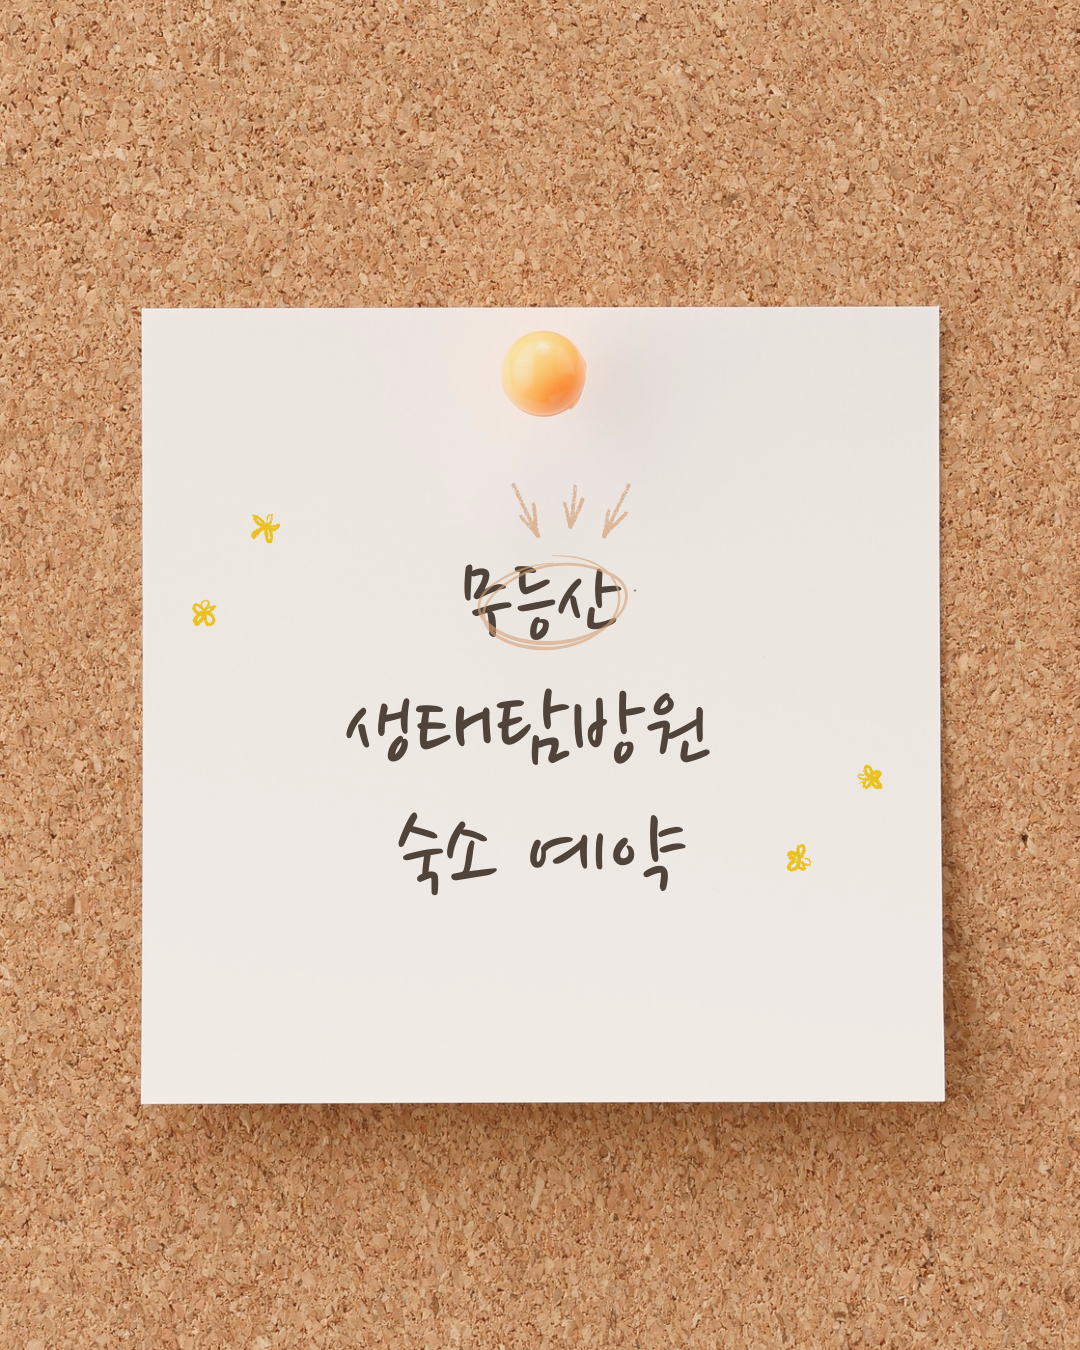 무등산
생태탐방원
숙소 예약